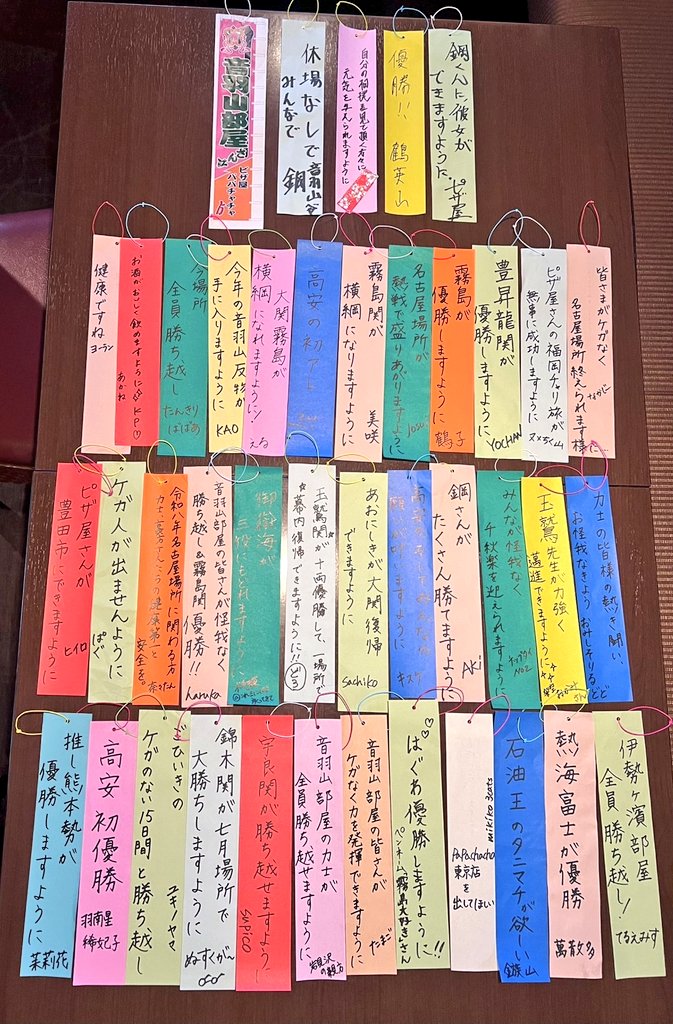 鋼くんに彼女が
できますように。ピザ屋
優勝!! 鶴英山
自分の相撲を見て頂く方々に
元気を与えられますように
休場なしで
みんなで 鋼
音羽山部屋
ピザ屋
パパチャチャ
皆さまがケガなく
名古屋場所終えられます様に…
ピザ屋さんの福岡ナリ旅が
無事に成功しますように
豊昇龍関が
優勝しますように YOCHAN
霧島関が
優勝しますように 鶴子
名古屋場所が
熱戦で盛りあがりますように
霧島関が
横綱になりますように 美咲
高安の初アド
大関霧島が
横綱になれますように! える
今年の音羽山反物が
手に入りますように KAO
今場所
全員勝ち越し たんきりばばあ
お酒がおいしく飲めますように KP♡ あかね
健康ですね ヨーラン
力士の皆様の熱き闘い、
お怪我なきよう おみしそりるどど
玉鷲先生が力強く
邁進できますように
みんなが怪我なく
千秋楽を迎えられますように
鋼さんが
たくさん勝てますように AKi
ますように キスケ
あおにしきが大関復帰
できますように Sachiko
玉鷲関が十両優勝して、一場所で
幕内復帰できますように!! どろ
御嶽海が
三役にもどれますように
音羽山部屋の皆さんが怪我なく
勝ち越し&霧島関優勝!! haruka
令和八年名古屋場所に関わる方
安全を。
ケガ人が出ませんように ぱぐ
ピザ屋さんが
豊田市にできますように ヒイロ
伊勢ヶ濱部屋
全員勝ち越し! てるえみす
熱海富士が優勝 萬散多
石油王のタニマチが欲しい 鏃山
mikiko 3cats
PaPachacha
東京店
を
出してほしい
はぐあ優勝しますように!!
ペンネーム、霧島大好きさん
音羽山部屋の皆さんが
ケガなく力を発揮できますように たまご
音羽山部屋の力士が
全員勝ち越せますように 岩見沢の親方
宇良関が勝ち越せますように Supico
錦木関が七月場所で
大勝ちしますように ぬすくがん
ごひいきの
ケガのない15日間と勝ち越し ユキノヤマ
高安 初優勝 羽南星 稀妃子
推し熊本勢が
優勝しますように 茉莉花